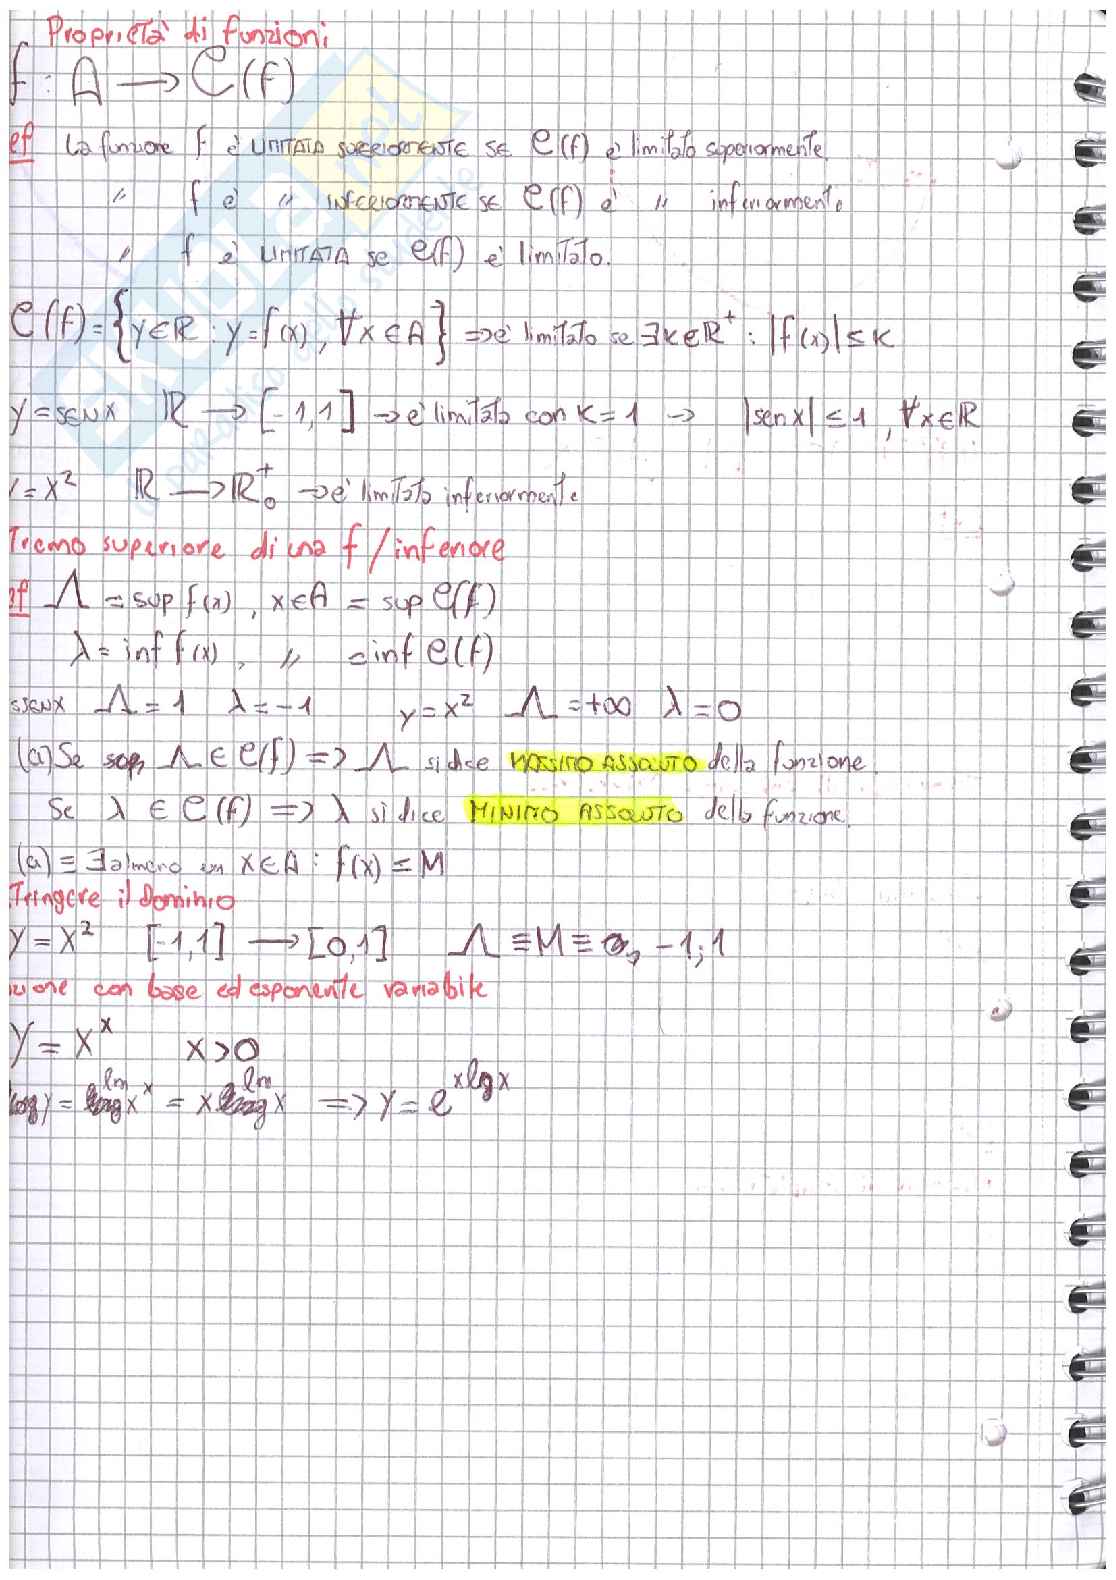 Proprietà di funzioni
f : A → C(f)
ef La funzione f è LIMITATA SUPERIORMENTE SE C(f) è limitato superiormente.
" f è " INFERIORMENTE SE C(f) è " inferiormente
" f è LIMITATA se C(f) è limitato.
C(f) = {y∈R : y=f(x), ∀x∈A} => è limitato se ∃k∈R⁺ : |f(x)| ≤ K
y = senx R → [-1,1] → è limitata con K=1 → |senx| ≤ 1, ∀x∈R
y = x² R → R₀⁺ → è limitata inferiormente
Tremo superiore di una f / inferiore
ef Λ = sup f(x), x∈A = sup C(f)
λ = inf f(x), " = inf C(f)
senx Λ = 1 λ = -1 y = x² Λ = +∞ λ = 0
(a) Se sop, Λ ∈ C(f) => Λ si dice MASSIMO ASSOLUTO della funzione.
Se λ ∈ C(f) => λ si dice MINIMO ASSOLUTO della funzione.
(a) = ∃ almeno un x∈A : f(x) = M
Tringere il Dominio
y = x² [-1,1] → [0,1] Λ ≡ M ≡ -1; 1
zione con base ed esponente variabile
y = x^x x > 0
y = ln x^x = x ln x => y = e^{x lg x}